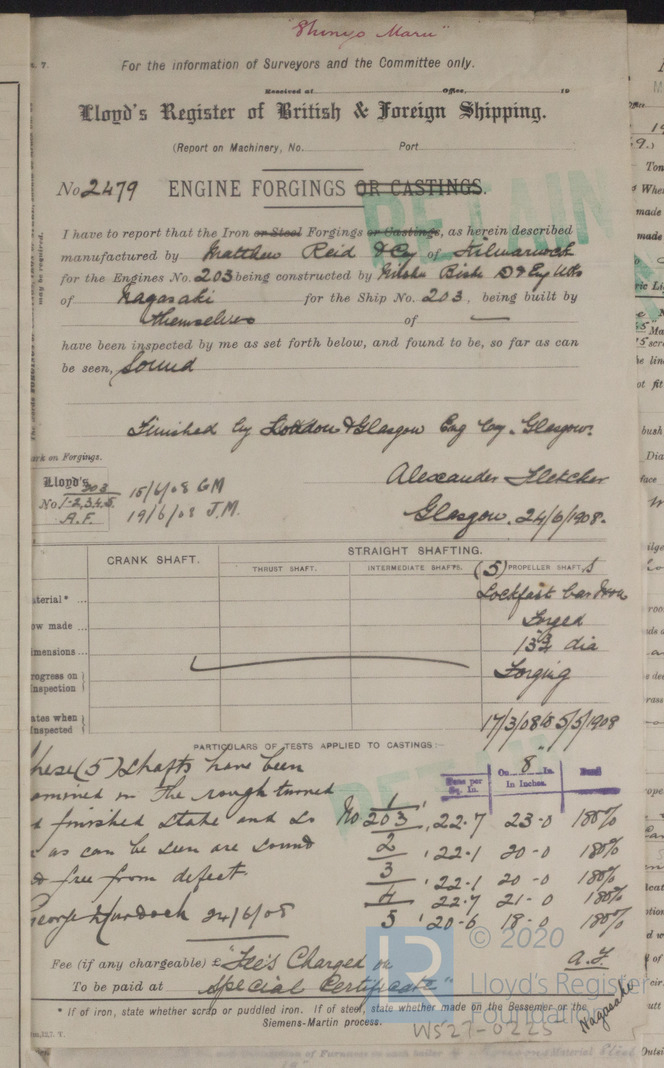 "Shinyo Maru"
For the information of Surveyors and the Committee only.
Received at Office, 19
Lloyd's Register of British & Foreign Shipping.
(Report on Machinery, No. Port
No. 2479 ENGINE FORGINGS OR CASTINGS.
I have to report that the Iron or Steel Forgings or Castings, as herein described
manufactured by Matthew Reid & Cy of Kilmarnock
for the Engines No. 203 being constructed by Mitsu Bishi D & Eng Wks
of Nagasaki for the Ship No. 203, being built by
themselves of —
have been inspected by me as set forth below, and found to be, so far as can
be seen, Sound
Finished by London & Glasgow Eng Coy. Glasgow.
ark on Forgings.
Lloyd's
203
No. 1-2,3,4,5.
A.F.
15/6/08 GM
19/6/08 J.M.
Alexander Fletcher
Glasgow. 24/6/1908.
CRANK SHAFT. STRAIGHT SHAFTING.
THRUST SHAFT. INTERMEDIATE SHAFTS. (5) PROPELLER SHAFTS
aterial* ... Lockfast bar Iron
ow made ... Forged
imensions ... dia
rogress on Inspection } Forging
ates when Inspected } 17/3/08 to 5/5/1908
PARTICULARS OF TESTS APPLIED TO CASTINGS:—
hese (5) shafts have been
amined in the rough turned
d finished state and so
as can be seen are sound
& free from defect.
George Murdoch 24/6/08
Tons per Sq. In. On 8" In. In Inches. Bend
No 1/203, 22.7 23-0 180%
2 22.1 20-0 180%
3 22.1 20-0 180%
4 22.7 21-0 180%
5 20-6 18-0 180%
A.F.
Fee (if any chargeable) £ "Fee's Charged on
To be paid at Special Certificate"
* If of iron, state whether scrap or puddled iron. If of steel, state whether made on the Bessemer or the
Siemens-Martin process.
Nagasaki
WS27-0225
RETAIN
RETAIN
© 2020
Lloyd's Register
Foundation
LR